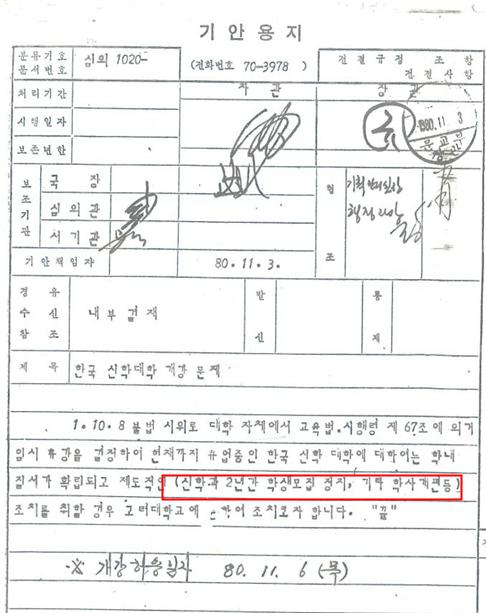 기 안 용 지
분류기호 문서번호 심의 1020- (전화번호 70-3978) 전결규정 조 항 전결사항
처리기간 차 관 장 관
시행일자 1980. 11. 3 문교부 장관
보존년한
보조기관 국 장 협조
심의관
서기관
기안책임자 80. 11. 3.
경유 수신 참조 내부결재 발신 통제
제 목 한국 신학대학 개강 문제
1. 10. 8 불법 시위로 대학 자체에서 교육법 시행령 제 67조에 의거
임시 휴강을 결정하여 현재까지 휴업중인 한국 신학 대학에 대하여는 학내
질서가 확립되고 제도적인 (신학과 2년간 학생모집 정지, 기타 학사개편등)
조치를 취할 경우 대학교에 하여 조치코자 합니다. "끝"
※ 개강허용일자 80. 11. 6 (목)